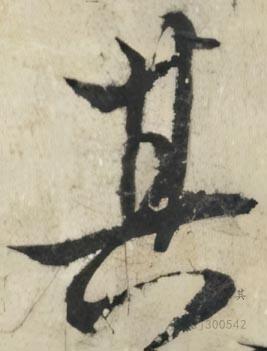 其
其
j300542